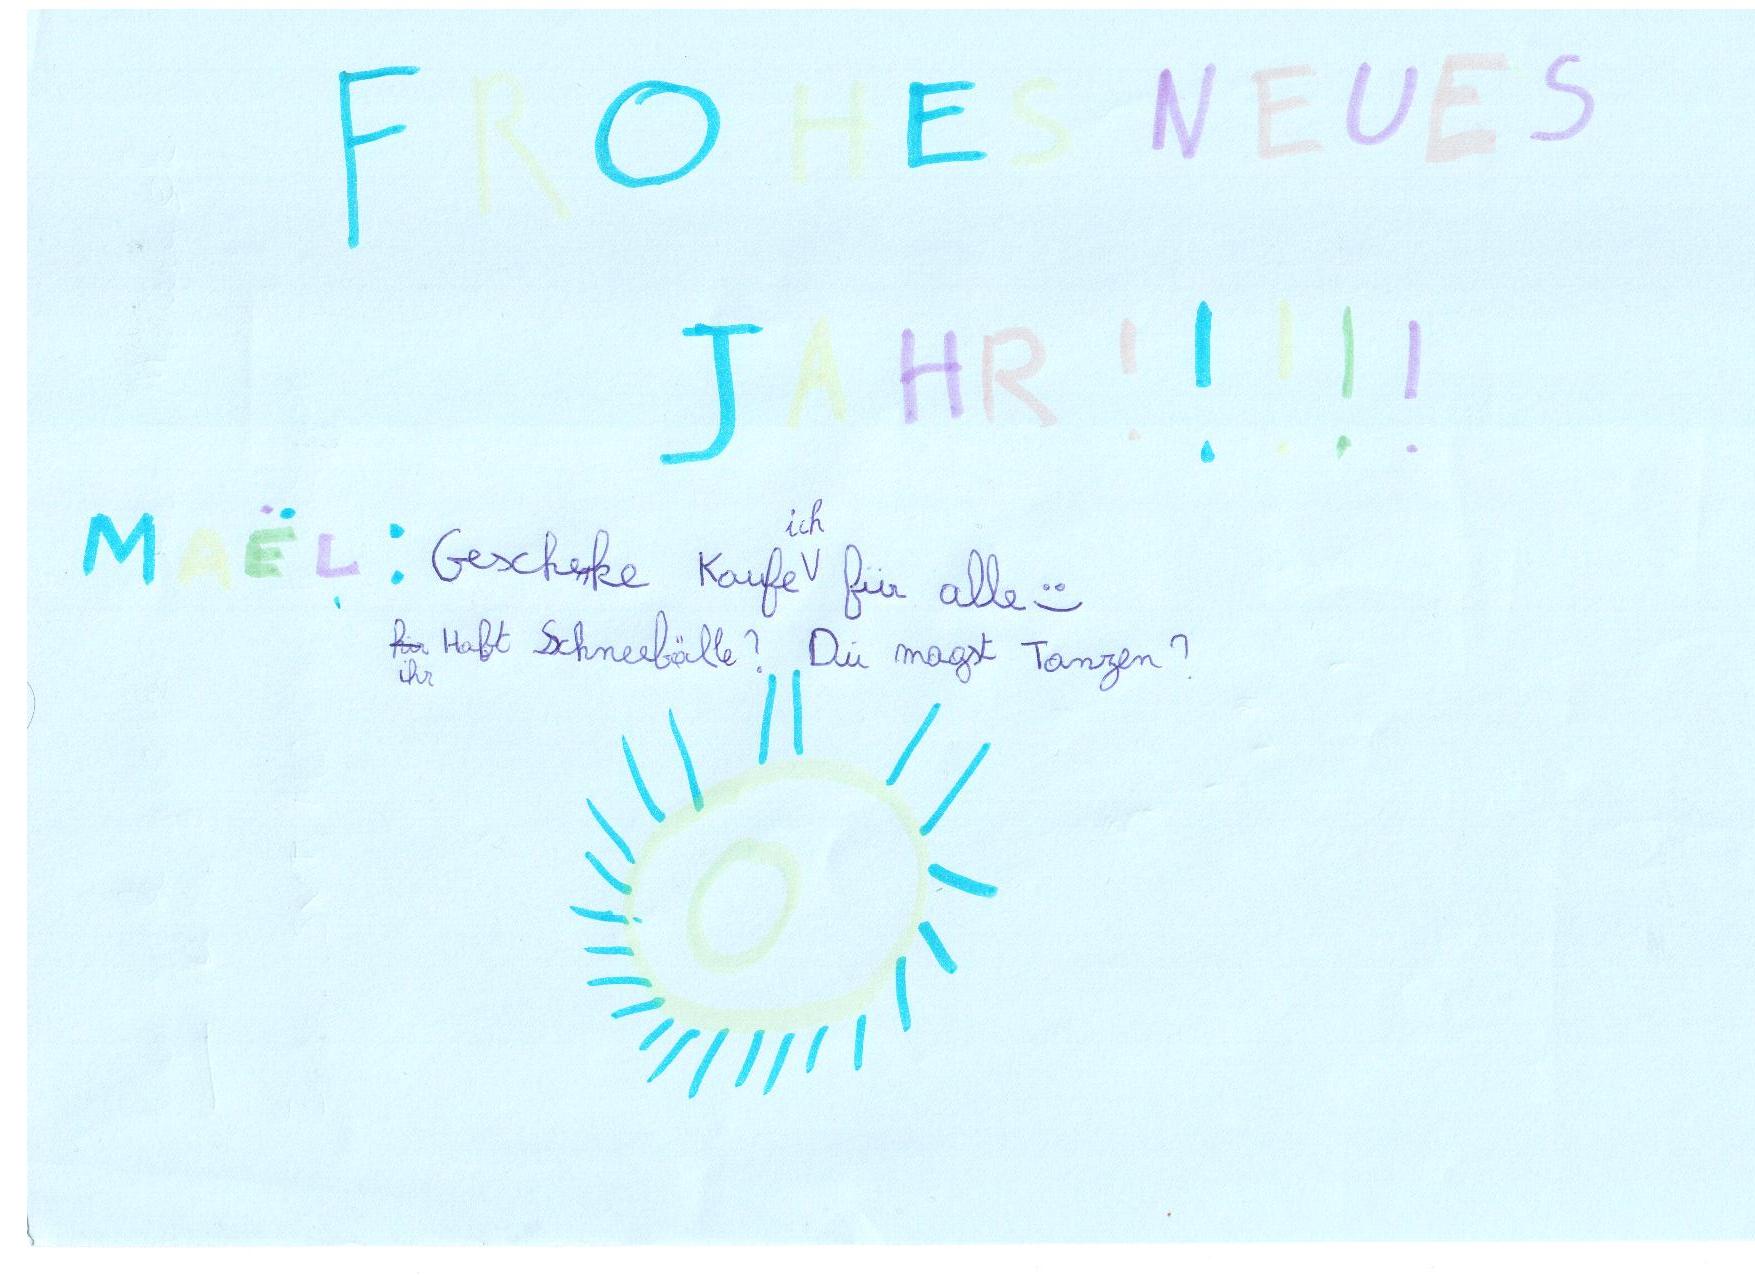 FROHES NEUES
JAHR !!!!!
MAËL : Geschenke Kaufe ich für alle
ihr Habt Schneebälle? Dü magst Tanzen?